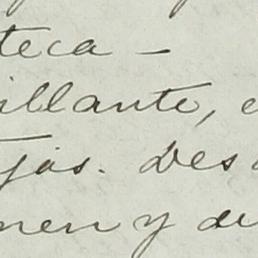 teca –
illante, e
jas. Des
men y de